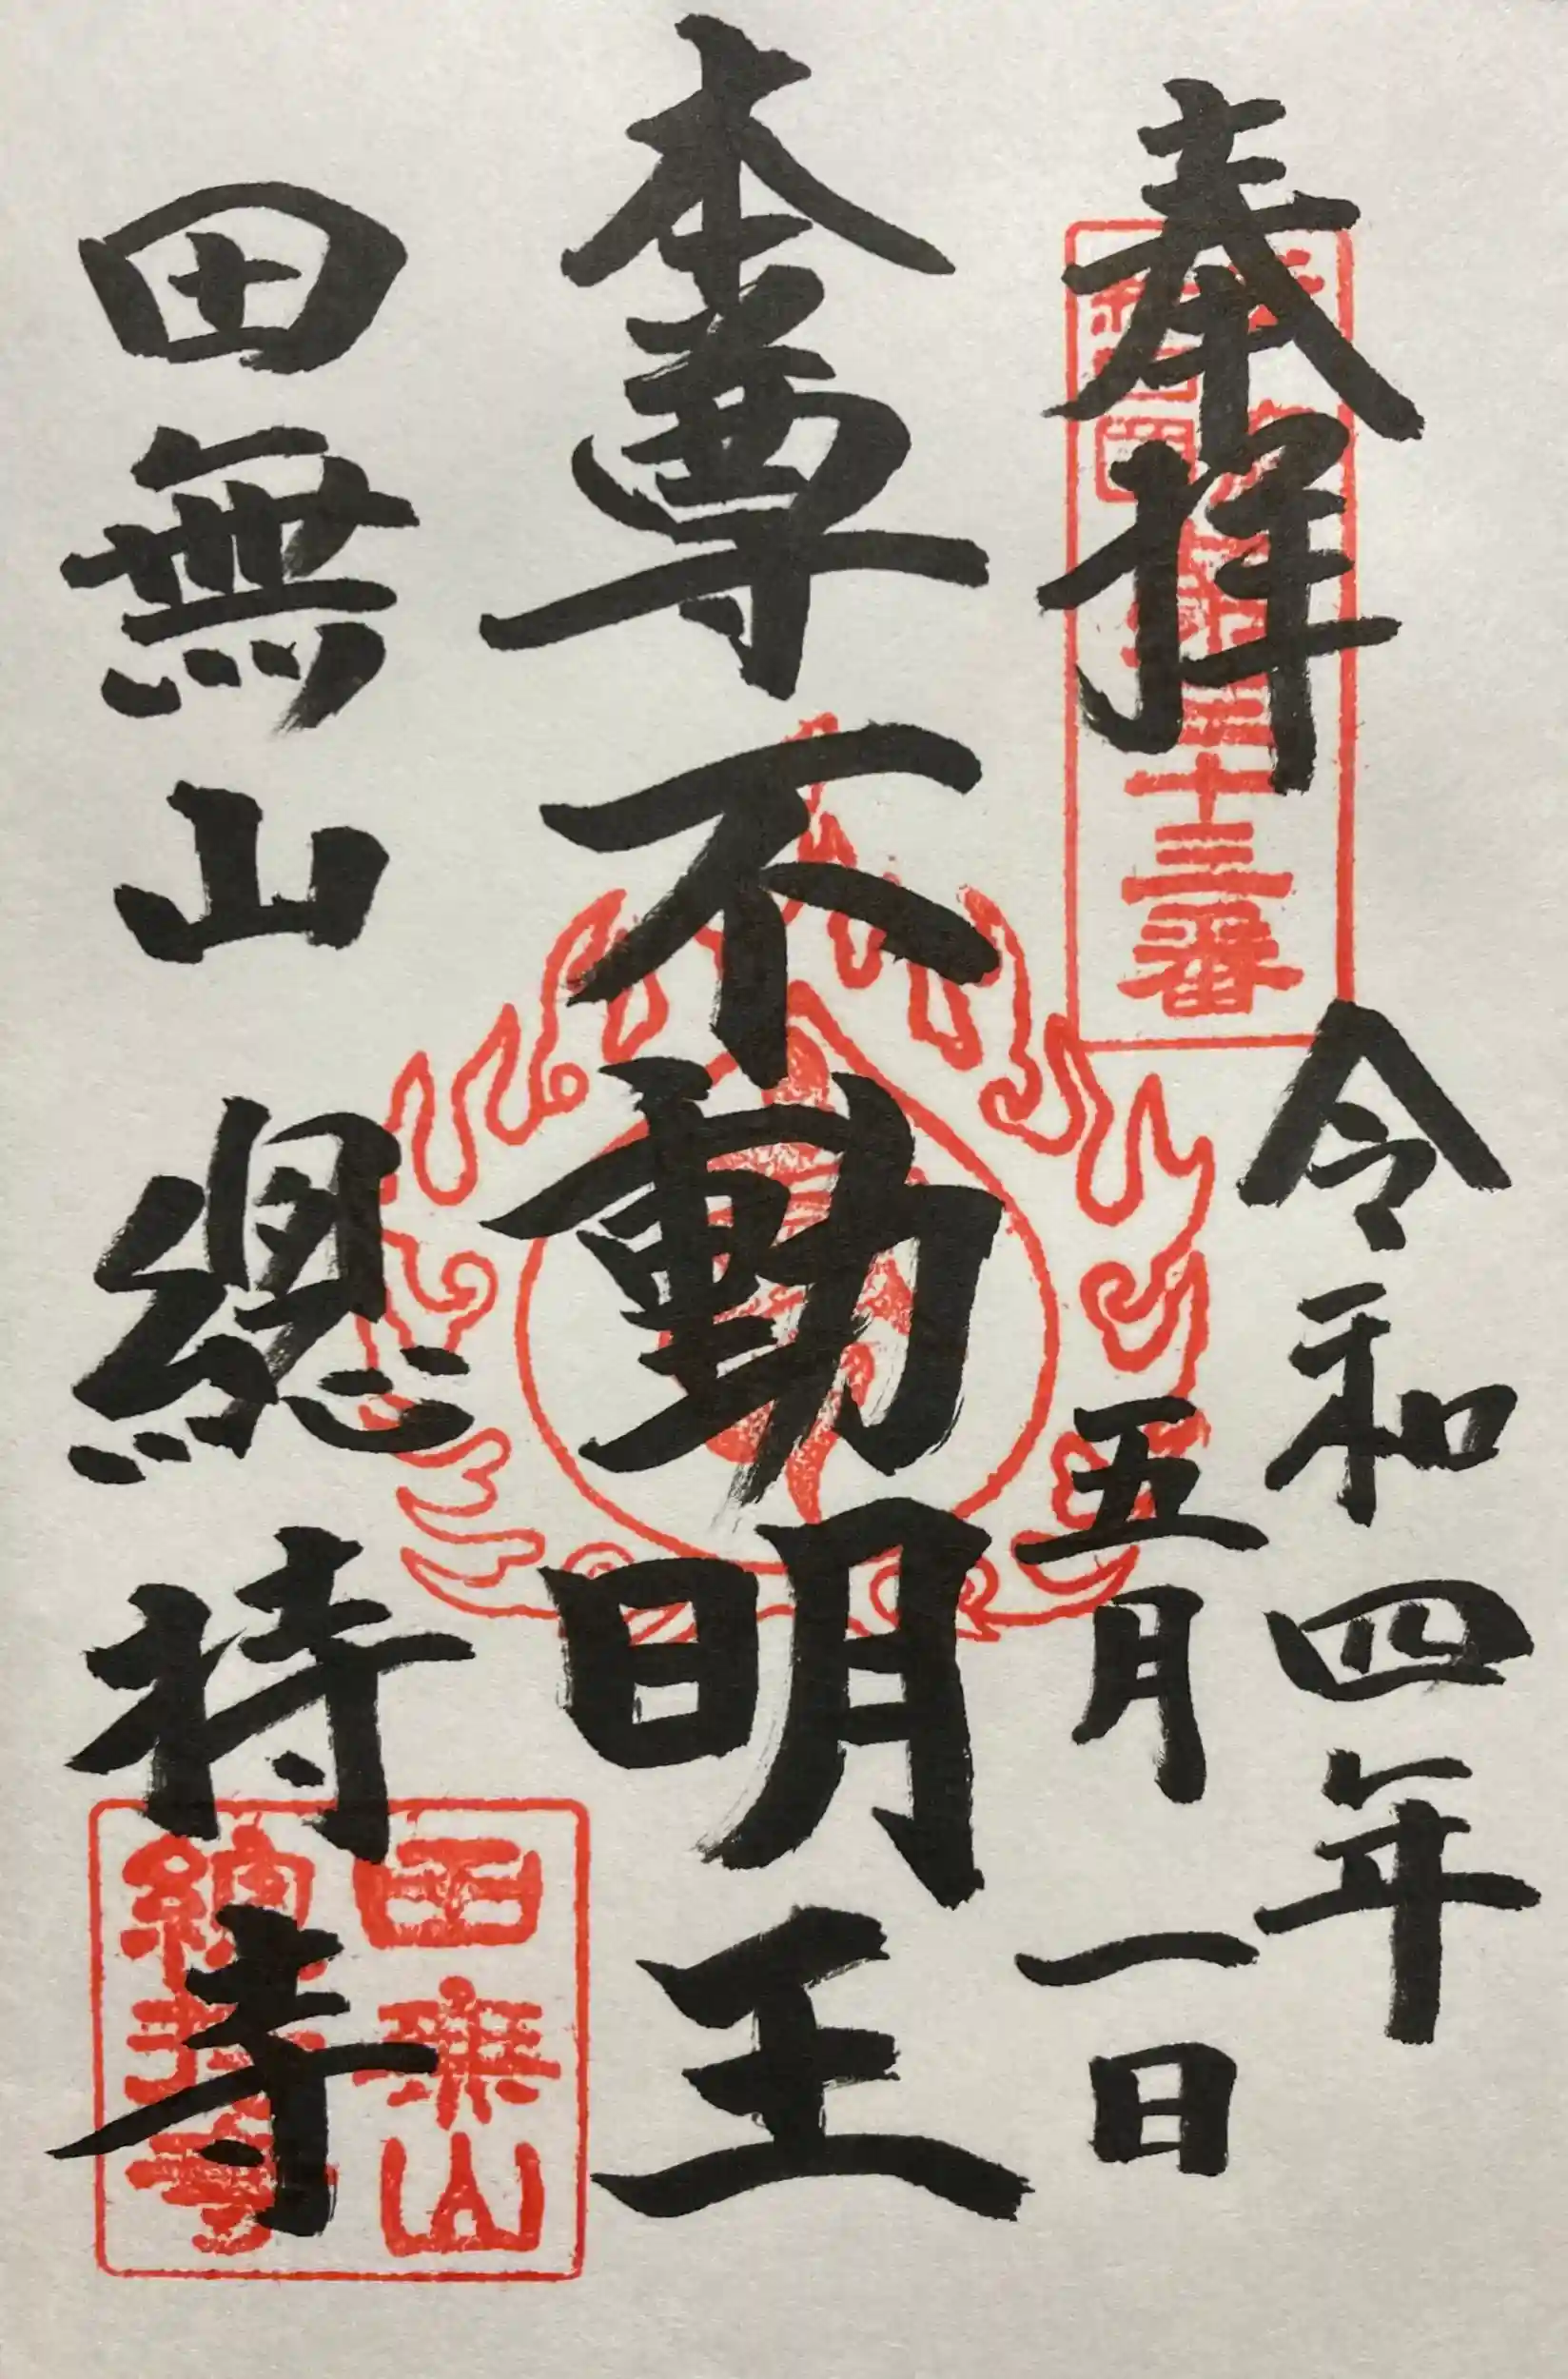 奉拝
令和四年
五月一日
本尊不動明王
田無山 總持寺
三十三番
田無山
總持寺